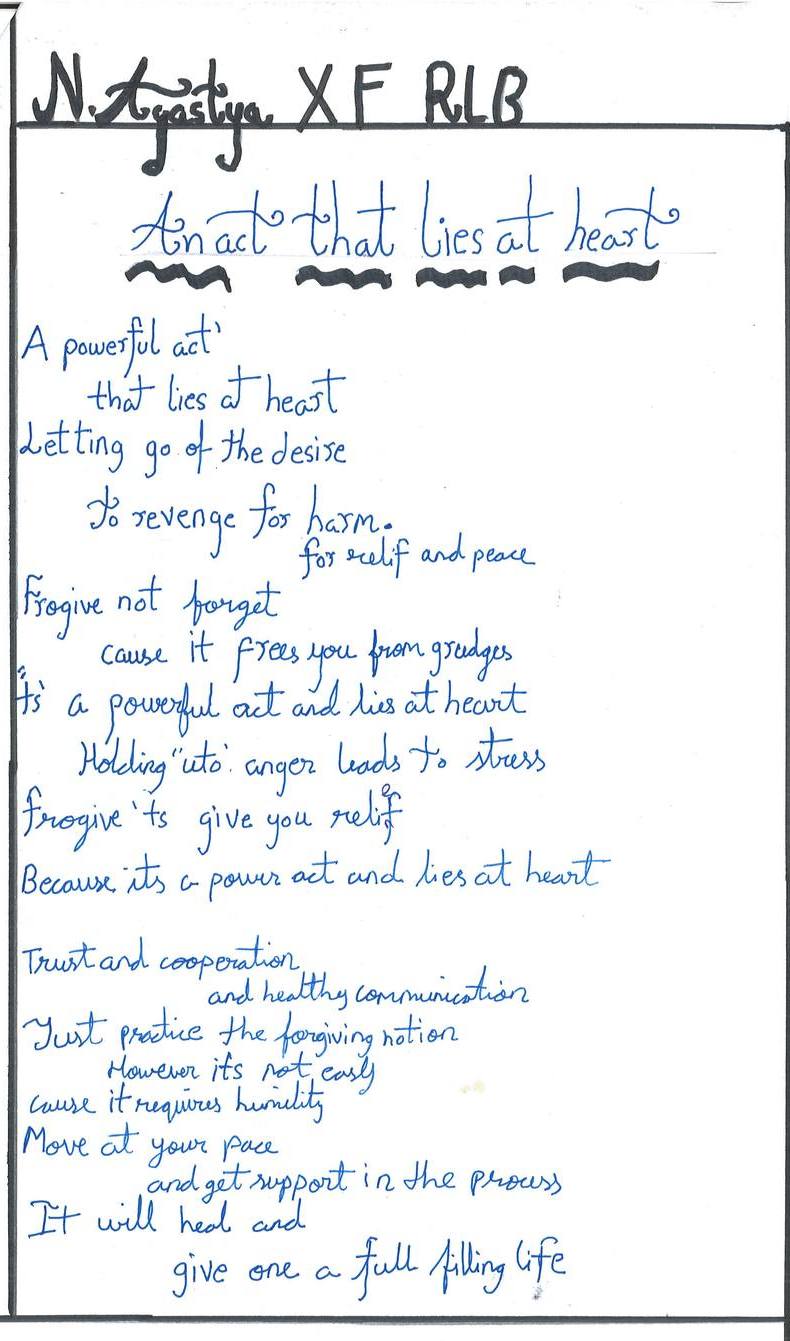 N. Agastya X F RLB
An act that lies at heart
A powerful act'
that lies at heart
Letting go of the desire
To revenge for harm.
for relif and peace
Frogive not forget
cause it frees you from grudges
'ts' a powerful act and lies at heart
Holding "uto" anger leads to stress
frogive 'ts give you relief
Because its a power act and lies at heart
Trust and cooperation
and healthy communication
Just practice the forgiving notion
However it's not easy
cause it requires humility
Move at your pace
and get support in the process
It will heal and
give one a full filling life